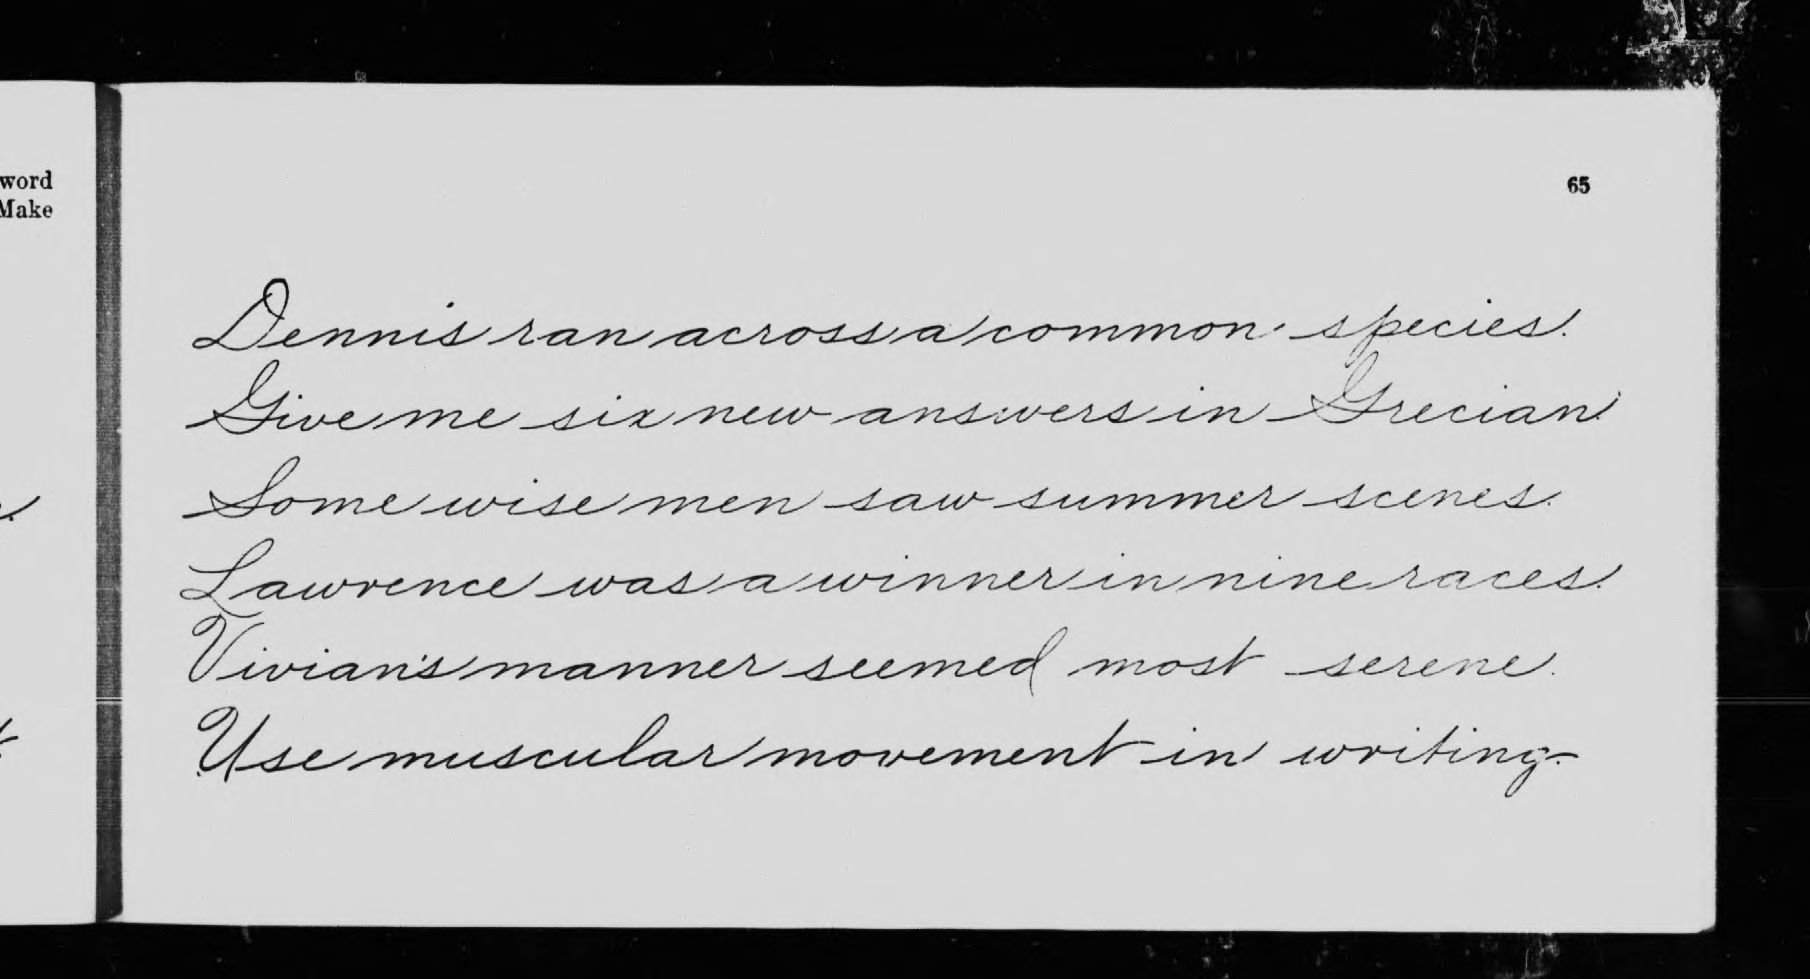 word
Make
65
Dennis ran across a common species.
Give me six new answers in Grecian.
Some wise men saw summer scenes.
Lawrence was a winner in nine races.
Vivian's manner seemed most serene.
Use muscular movement in writing.